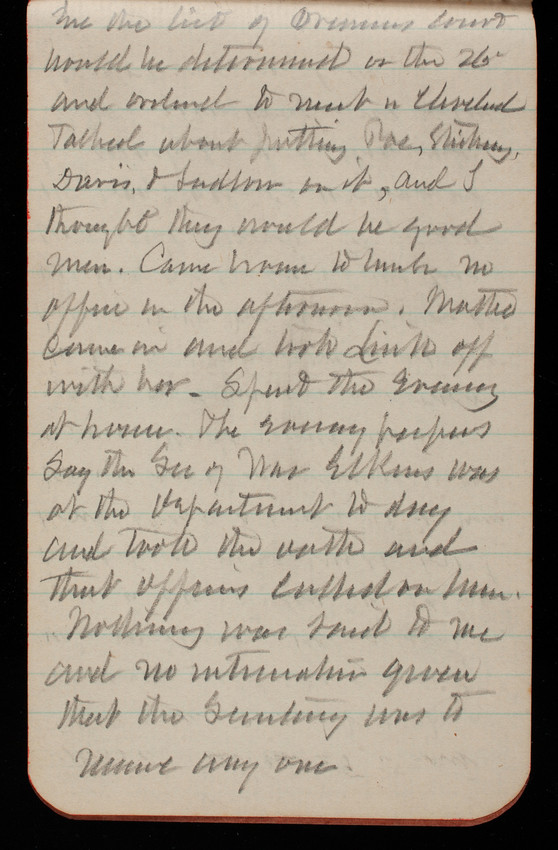 the list of Ordnance Court
would be determined on the 26
and ordered to meet in Cleveland
Talked about putting Poe, Stickney,
Davis, & Ludlow on it, and I
thought they would be good
men. Came home to lunch no
office in the afternoon. Mattie
came in and took Link off
with her. Spent the Evening
at home. The evening papers
Say the Sec of War Elkins was
at the Department to day
and took the oath and
that officers called on him.
Nothing was said to me
and no intimation given
that the Secretary was to
receive any one.